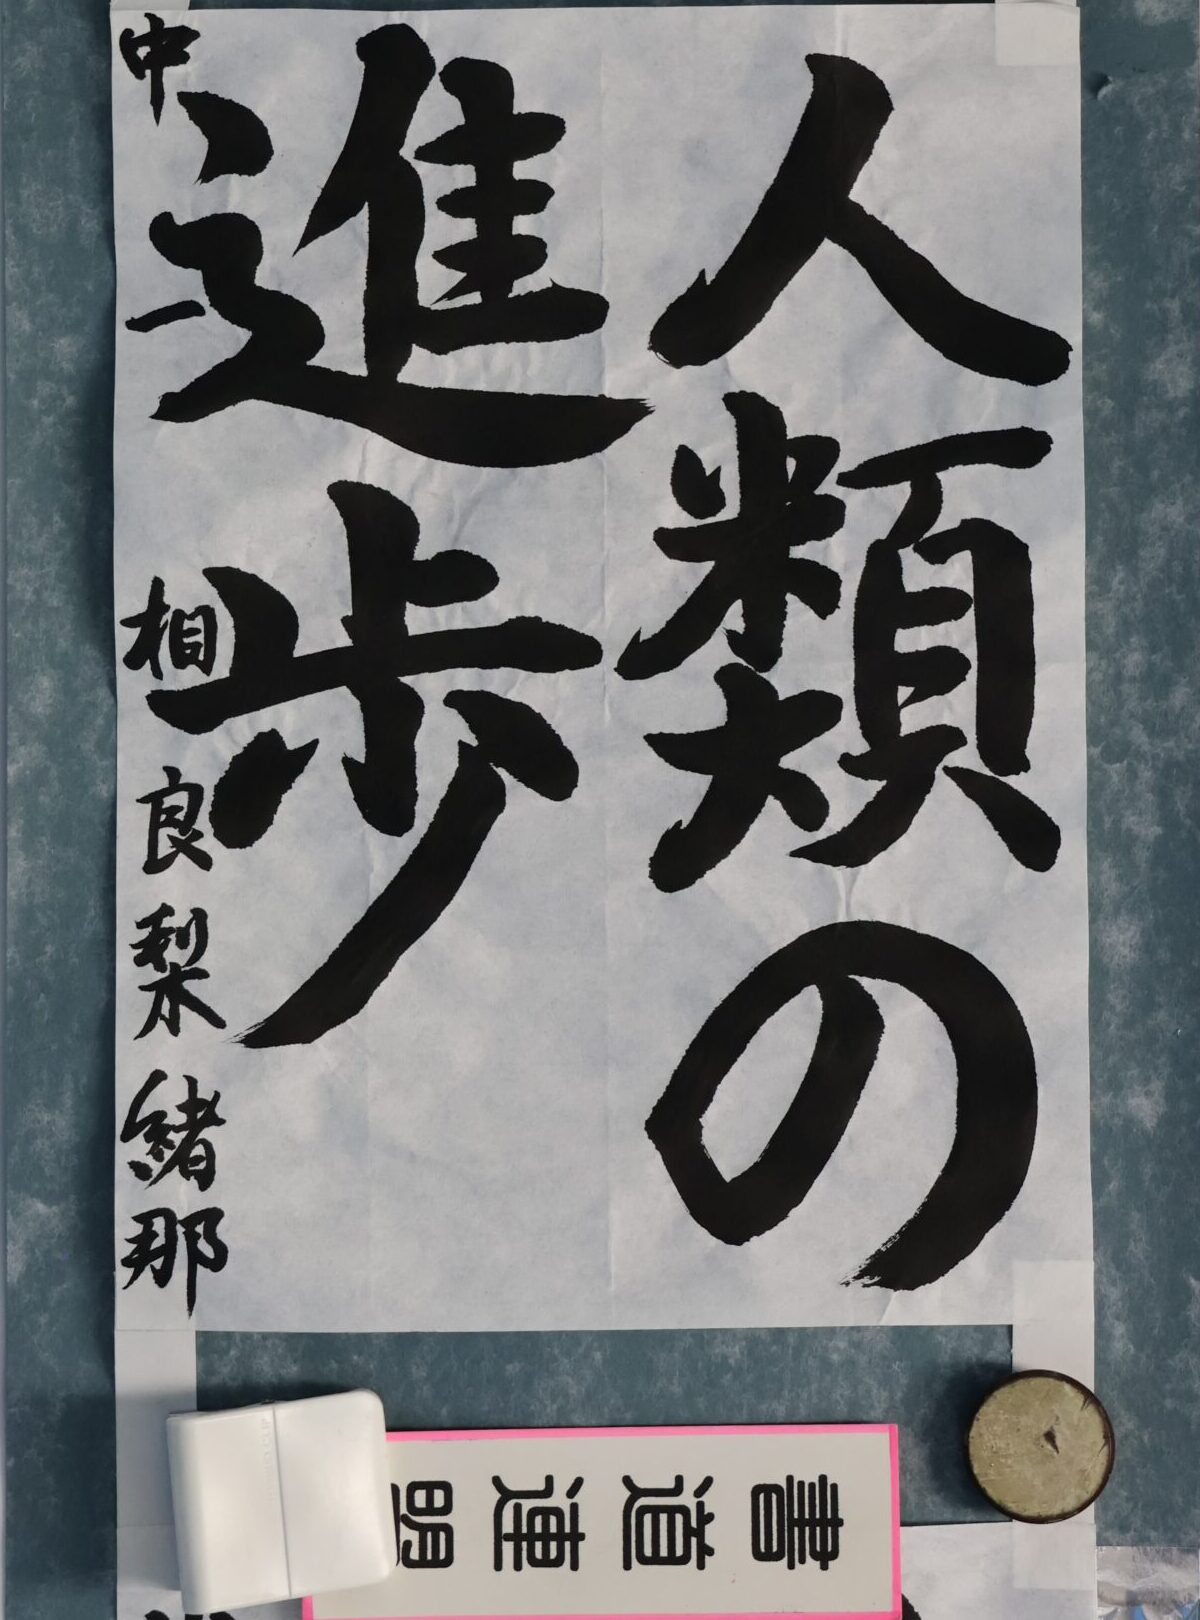 人類の
進歩
中一 相良梨緒那
書道連盟